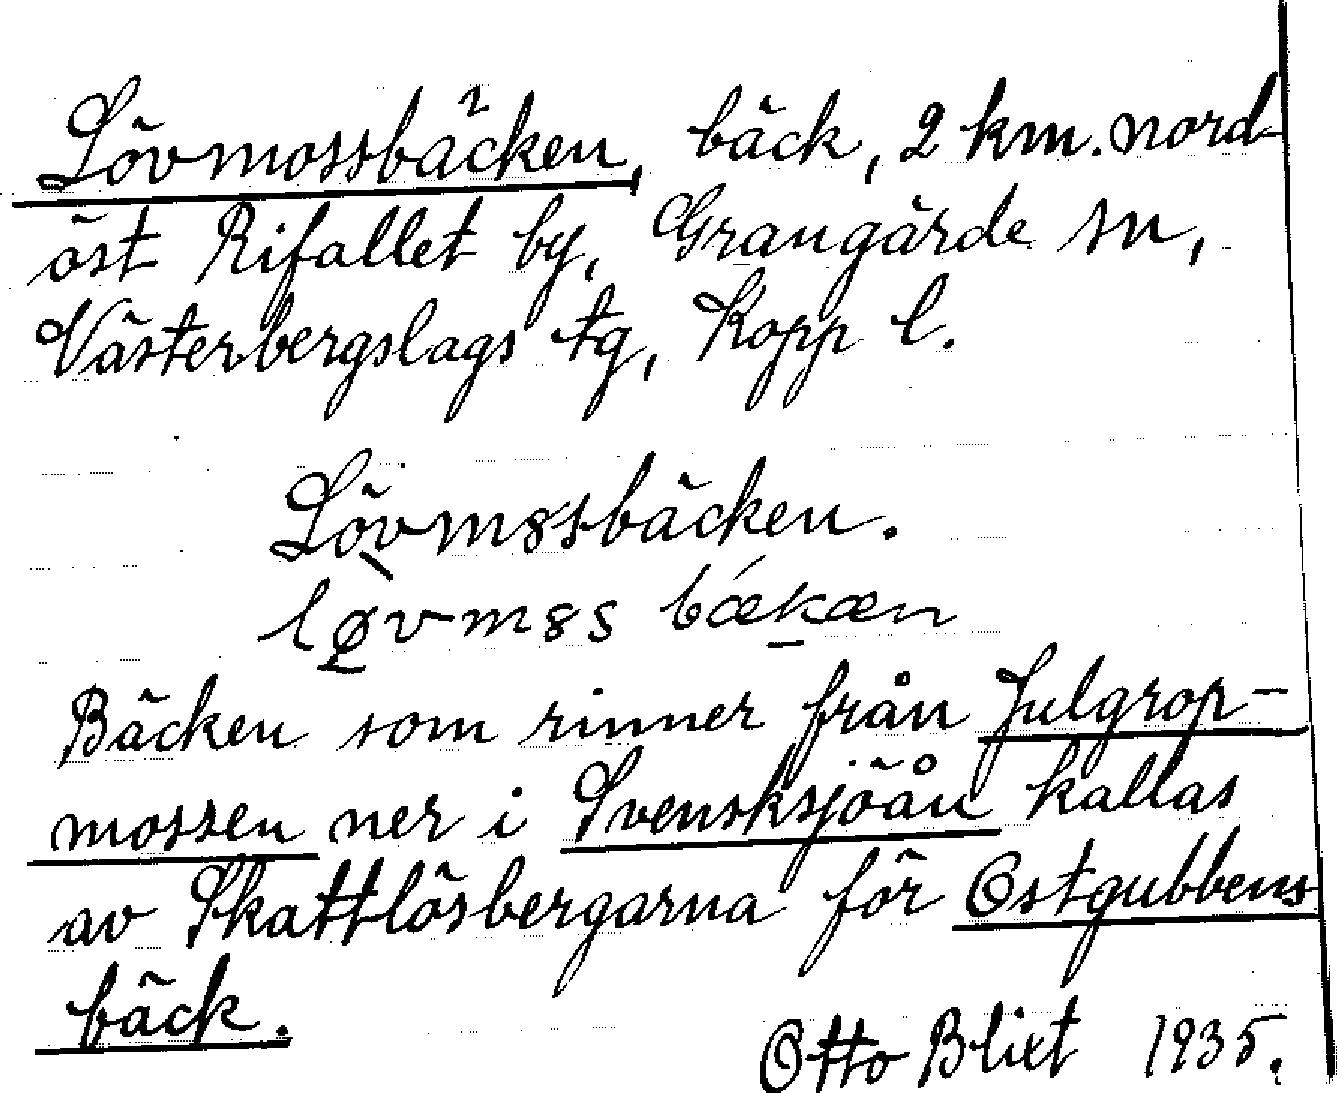 Lövmossbäcken, bäck, 2 km. nord-
öst Rifallet by, Grangärde sn,
Västerbergslags tg, Kopp l.
Lövm8ssbäcken.
løvm8s bækæn
Bäcken som rinner från Julgrop-
mossen ner i Svensksjöån kallas
av Skattlösbergarna för Ostgubbens
bäck.
Otto Blixt 1935.